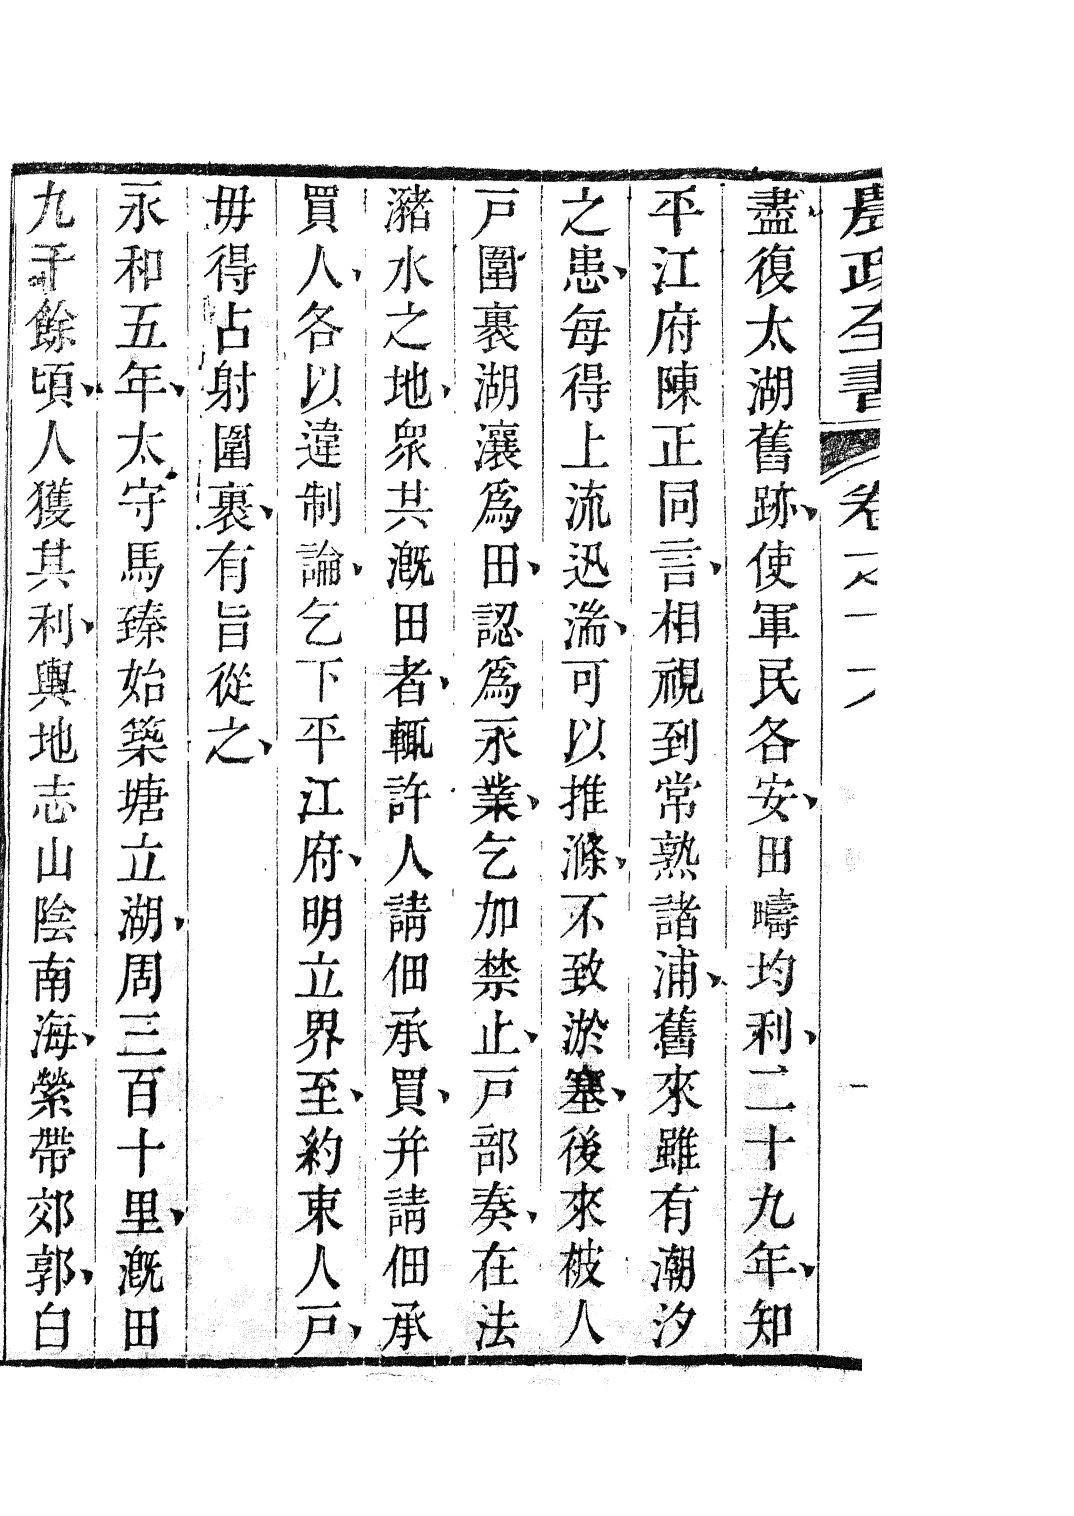 農政全書 卷之十六
盡復太湖舊跡、使軍民各安、田疇均利、二十九年、知
平江府陳正同言、相視到常熟諸浦、舊來雖有潮汐
之患、每得上流迅湍、可以推滌、不致淤塞、後來被人
戸圍裹湖瀼爲田、認爲永業、乞加禁止、戸部奏、在法
瀦水之地、衆共漑田者、輒許人請佃承買、并請佃承
買人、各以違制論、乞下平江府、明立界至、約束人戸、
毋得占射圍裹、有旨從之、
永和五年、太守馬臻始築塘立湖、周三百十里、漑田
九千餘頃、人獲其利、輿地志山陰南海、縈帶郊郭、白